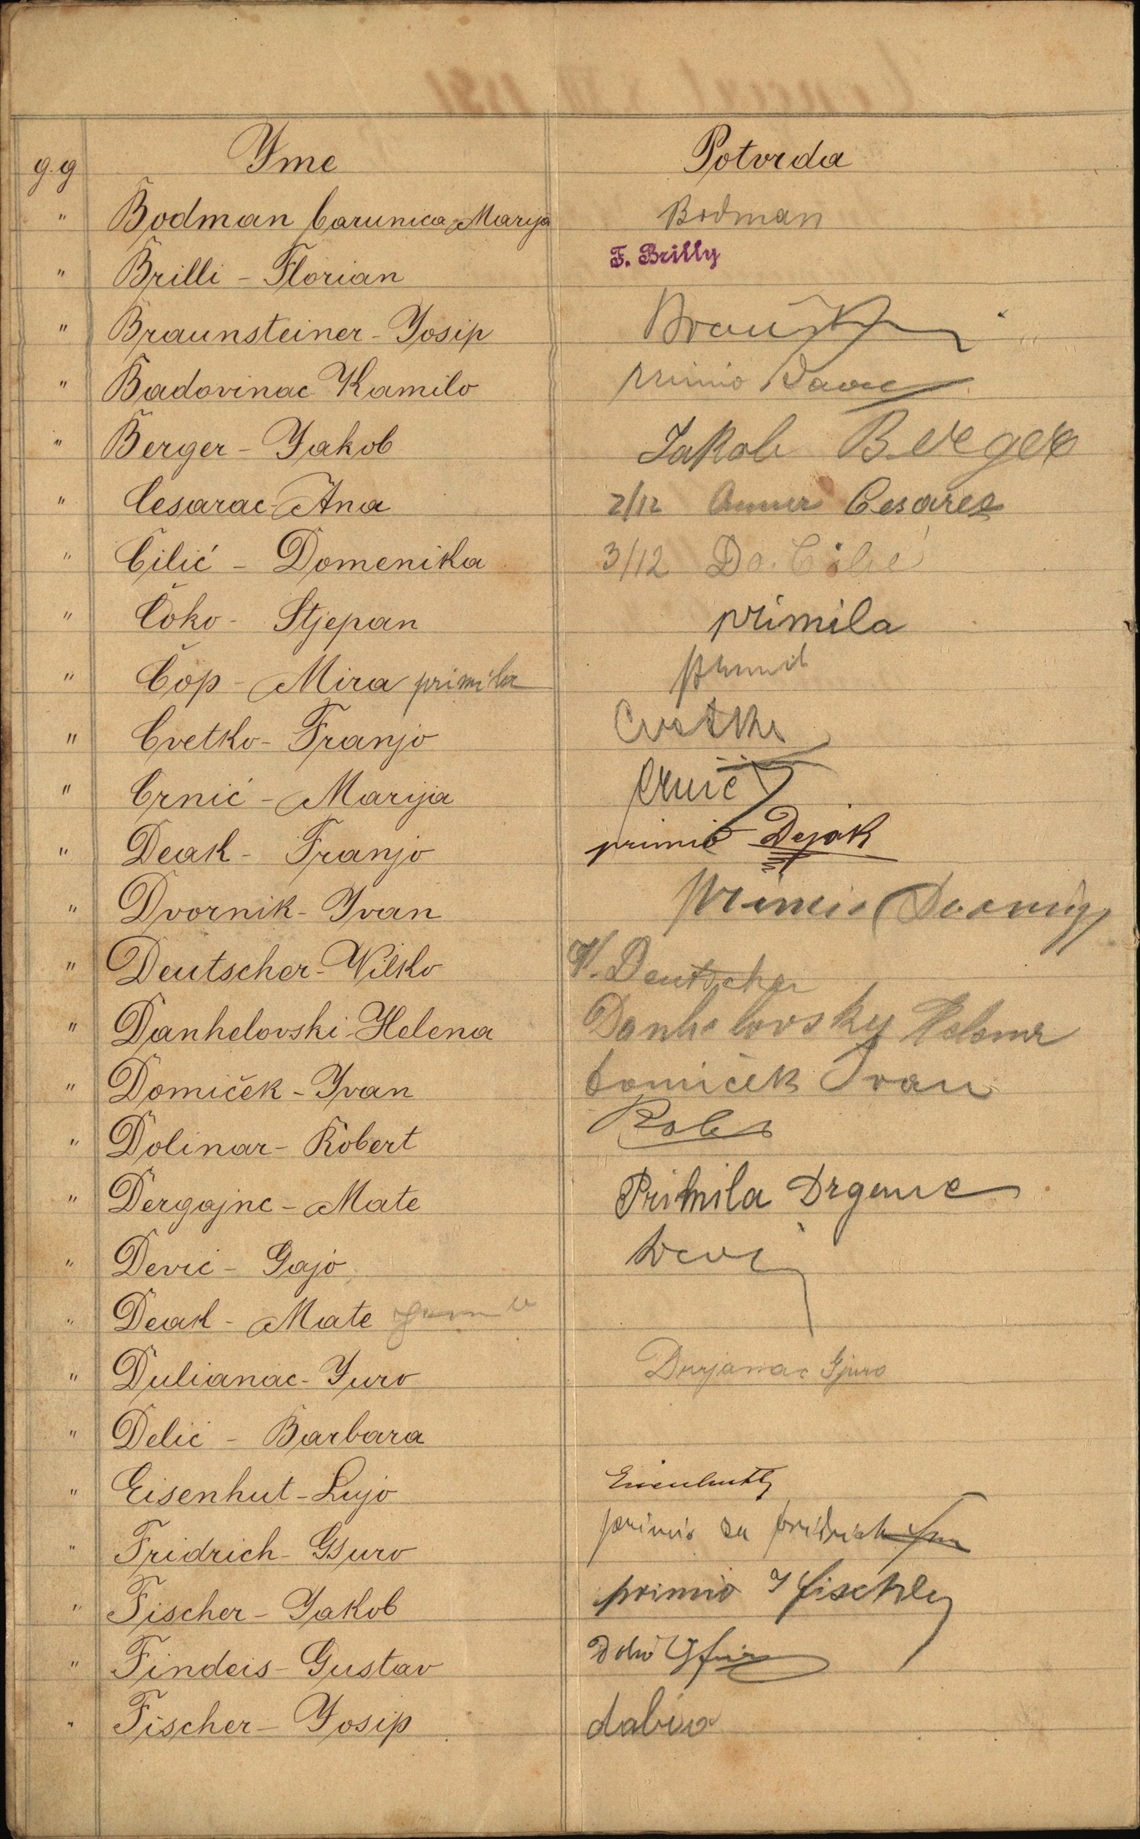 g.g Yme Potvrda
" Bodman barunica Marija Bodman
" Brilli - Florian F. Brilly
" Braunsteiner - Yosip
" Badovinac Kamilo primio
" Berger - Yakob Jakob Berger
" Cesarac - Ana 2/12 Cesarec
" Čilić - Domenika 3/12 Do. Čilić
" Čoko - Stjepan primila
" Čop - Mira primila
" Cvetko - Franjo Cvetko
" Crnić - Marija Crnić
" Deak - Franjo primio Dejak
" Dvornik - Yvan primio
" Deutscher - Vilko V. Deutscher
" Danhelovski - Helena Danhelovsky Helena
" Domiček - Yvan Domiček Ivan
" Dolinar - Robert
" Dergajnc - Mate Primila
" Dević - Gajo
" Deak - Mate
" Dulianac - Yuro Gjuro
" Delić - Barbara
" Eisenhut - Lujo
" Fridrich - Gjuro primio za Fridrich
" Fischer - Yakob primio
" Findeis - Gustav
" Fischer - Yosip dobio